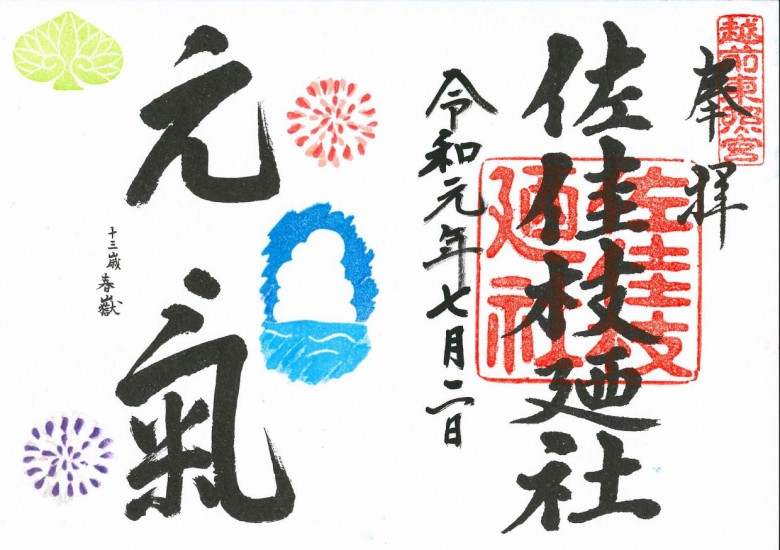 奉拝
越前東照宮
佐佳枝廼社
佐佳枝廼社
令和元年七月二日
元氣
十三歳 春嶽